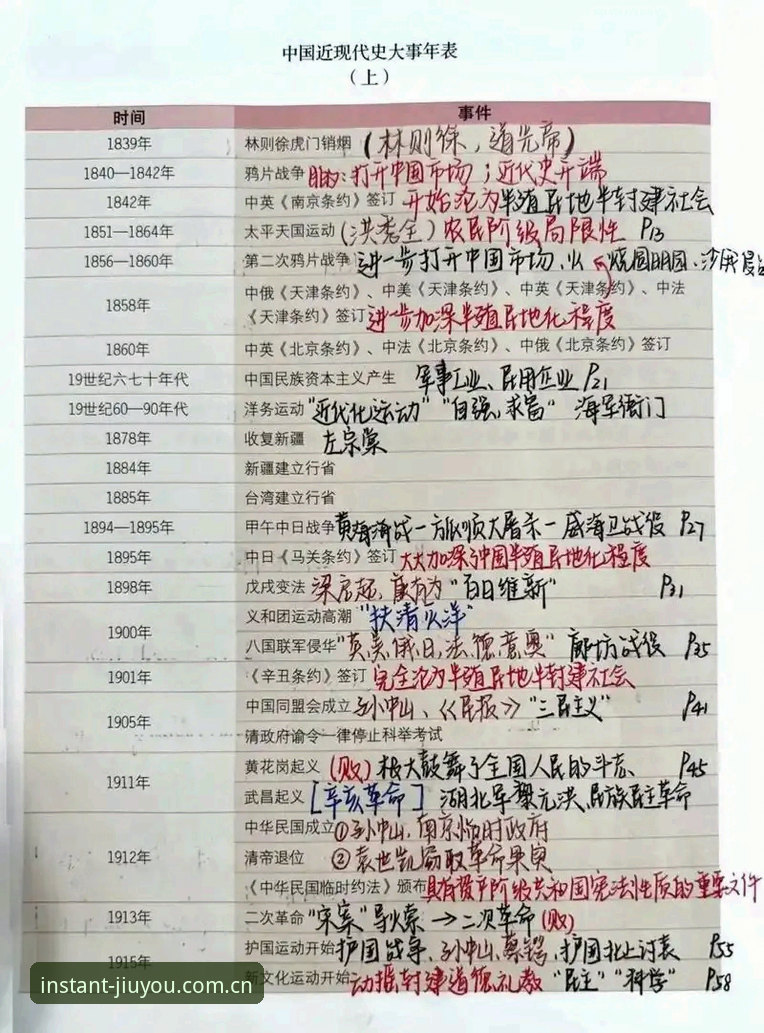 中国近现代史大事年表
（上）
时间 事件
1839年 林则徐虎门销烟 (林则徐，道光帝)
1840—1842年 鸦片战争 目的：打开中国市场；近代史开端
1842年 中英《南京条约》签订 开始沦为半殖民地半封建社会
1851—1864年 太平天国运动 (洪秀全) 农民阶级局限性 P13
1856—1860年 第二次鸦片战争 进一步打开中国市场、火烧圆明园、沙俄
1858年 中俄《天津条约》、中美《天津条约》、中英《天津条约》、中法
《天津条约》签订 进一步加深半殖民地化程度
1860年 中英《北京条约》、中法《北京条约》、中俄《北京条约》签订
19世纪六七十年代 中国民族资本主义产生 军事工业、民用企业 P21
19世纪60—90年代 洋务运动 "近代化运动" "自强，求富" 海军衙门
1878年 收复新疆 左宗棠
1884年 新疆建立行省
1885年 台湾建立行省
1894—1895年 甲午中日战争 黄海海战—旅顺大屠杀—威海卫战役 P27
1895年 中日《马关条约》签订 大大加深了中国半殖民地化程度
1898年 戊戌变法 梁启超，康有为 "百日维新" P31
1900年 义和团运动高潮 "扶清灭洋"
八国联军侵华 "英、美、俄、日、法、德、意、奥" 廊坊战役 P35
1901年 《辛丑条约》签订 完全沦为半殖民地半封建社会
1905年 中国同盟会成立 孙中山、《民报》 "三民主义" P41
清政府谕令一律停止科举考试
1911年 黄花岗起义 (败) 极大鼓舞了全国人民的斗志、 P45
武昌起义 [辛亥革命] 湖北军 黎元洪、民族民主革命
1912年 中华民国成立 ①孙中山，南京临时政府
清帝退位 ②袁世凯窃取革命果实
《中华民国临时约法》颁布 具有资产阶级共和国宪法性质的重要文件
1913年 二次革命 "宋案" 导火索 → 二次革命 (败)
1915年 护国运动开始 护国战争、孙中山、蔡锷，护国北上讨袁 P55
新文化运动开始 动摇封建道德礼教 "民主" "科学" P58
instant-jiuyou.com.cn